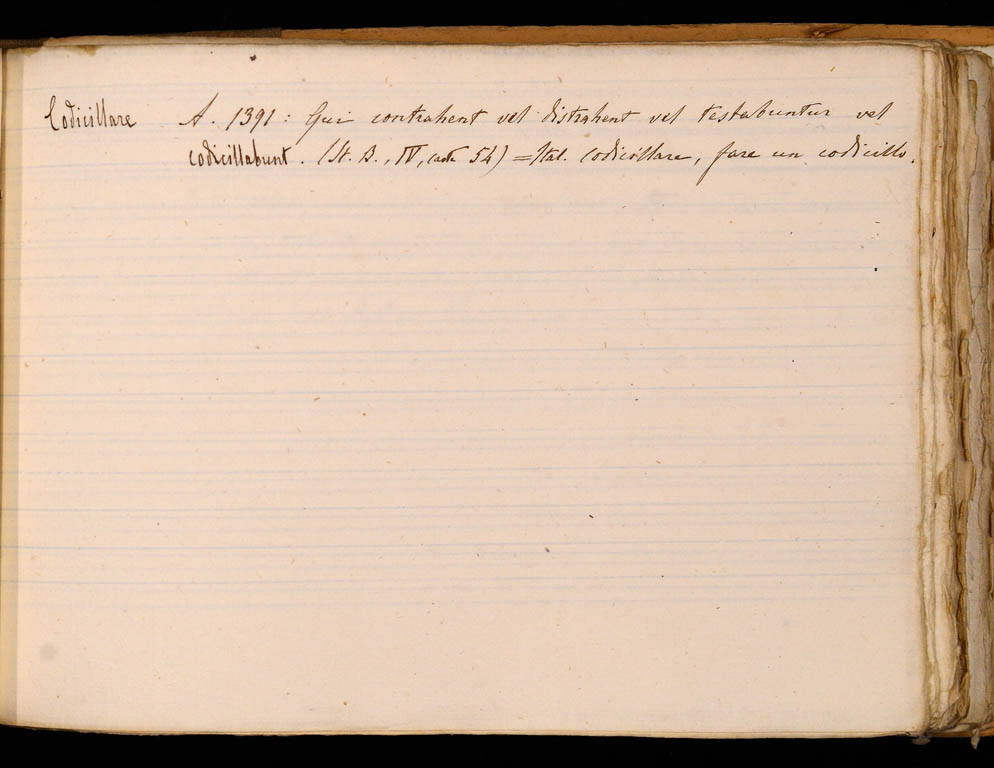 Codicillare A. 1391: Qui contrahent vel distrahent vel testabuntur vel
codicillabunt. (St. B., IV, carta 54) = Ital. Codicillare, fare un codicillo.